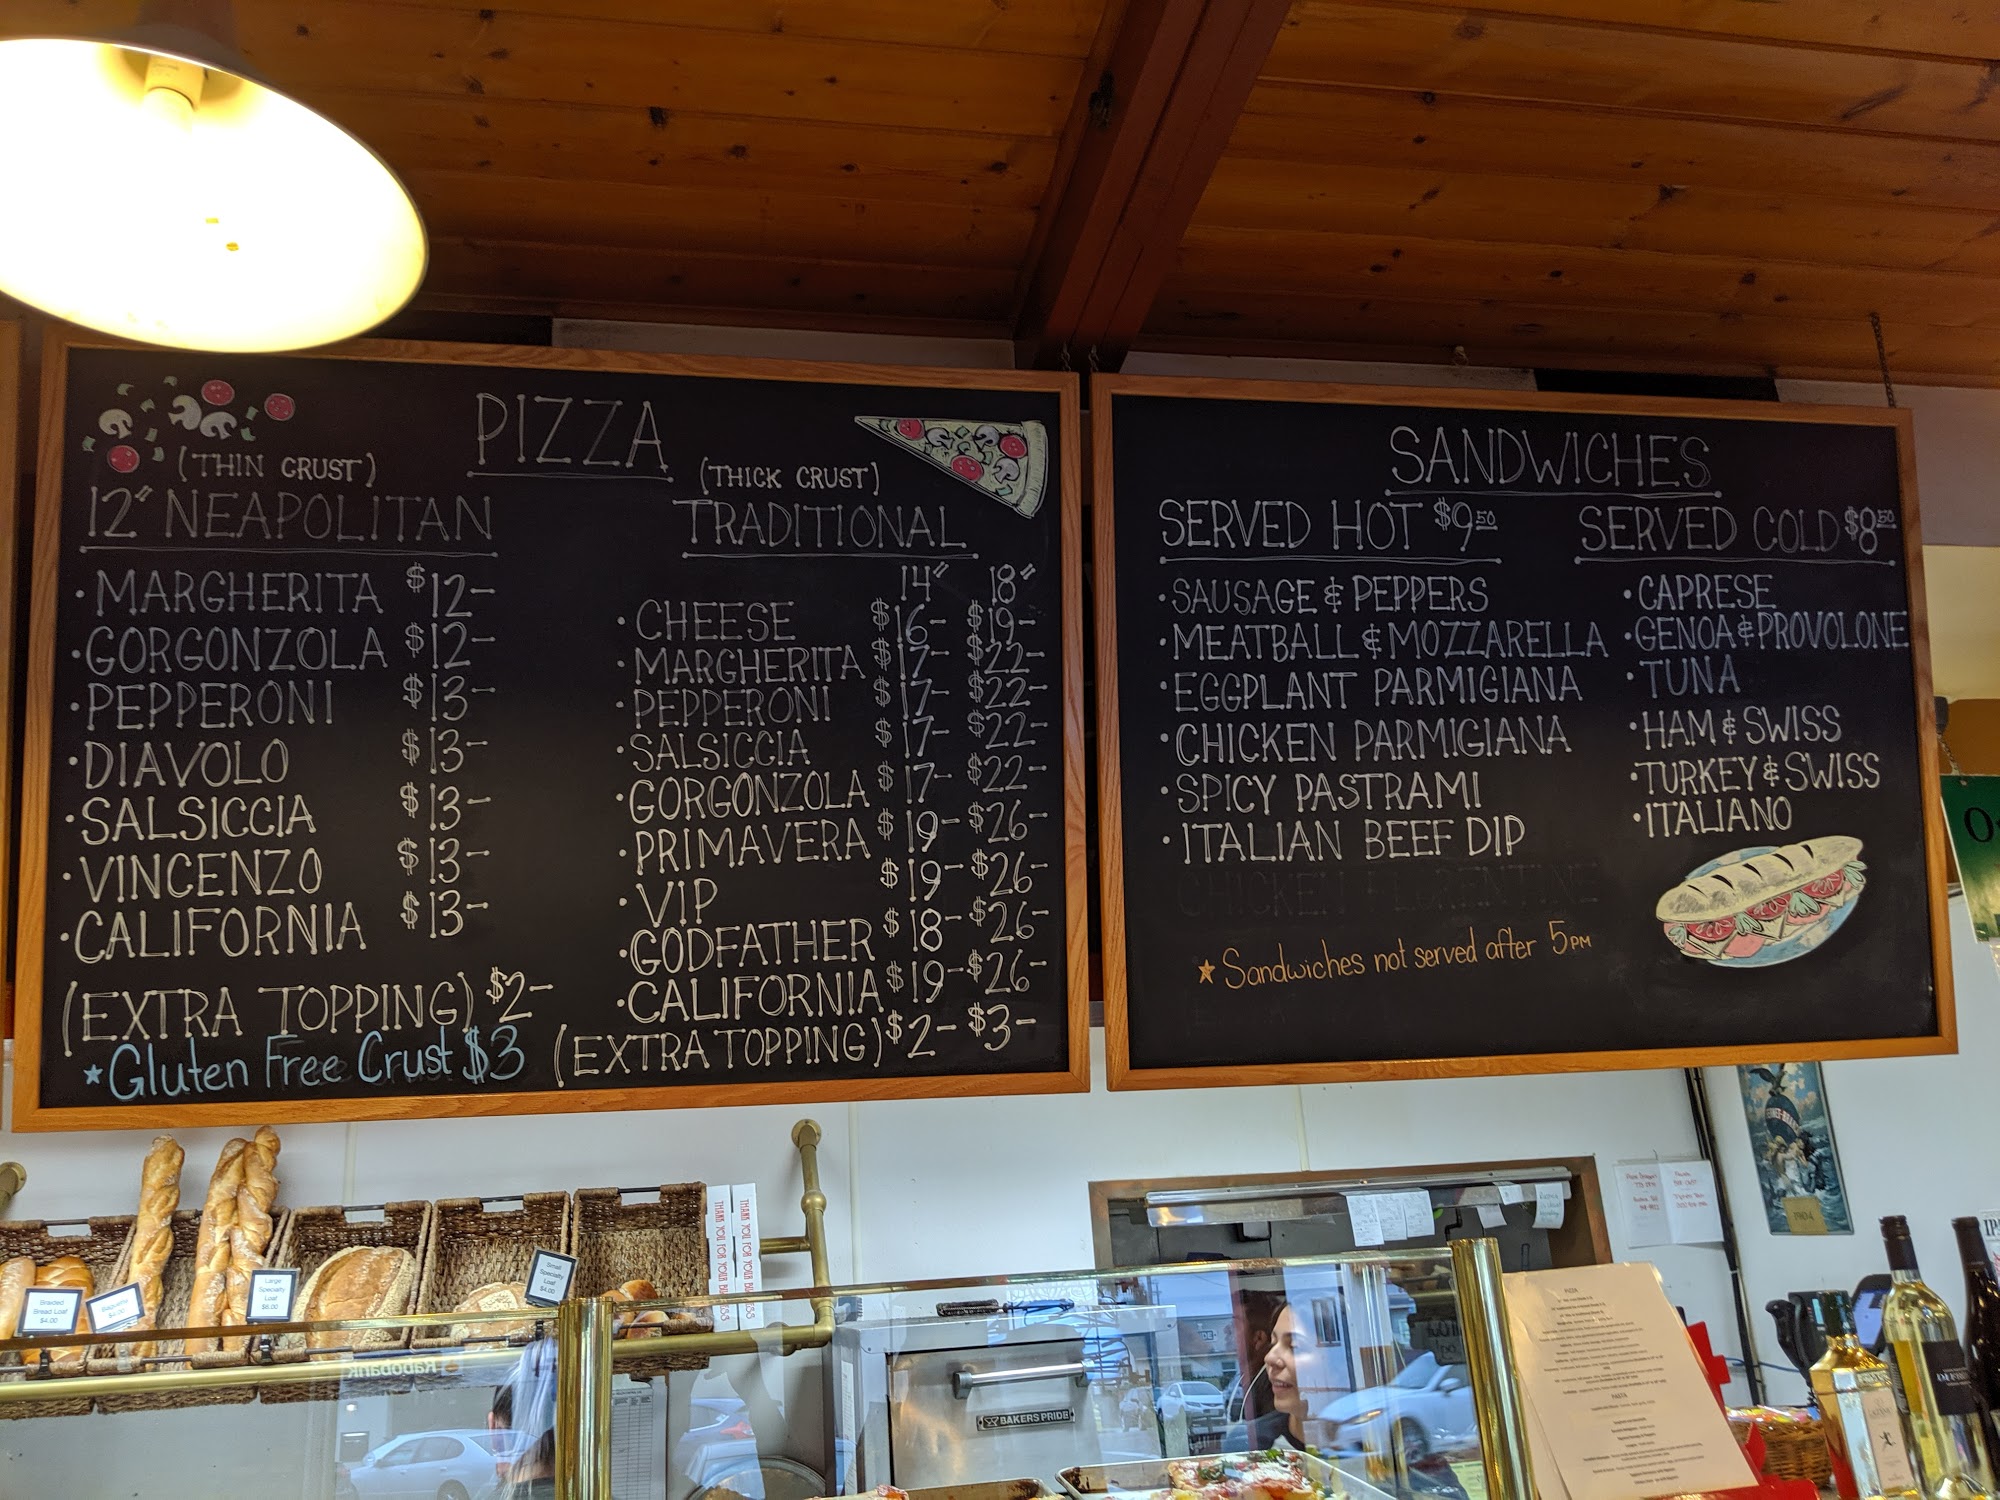 PIZZA
(THIN CRUST)
12" NEAPOLITAN
• MARGHERITA $12-
• GORGONZOLA $12-
• PEPPERONI $13-
• DIAVOLO $13-
• SALSICCIA $13-
• VINCENZO $13-
• CALIFORNIA $13-
(EXTRA TOPPING) $2-
★ Gluten Free Crust $3
(THICK CRUST)
TRADITIONAL
14" 18"
• CHEESE $16- $19-
• MARGHERITA $17- $22-
• PEPPERONI $17- $22-
• SALSICCIA $17- $22-
• GORGONZOLA $17- $22-
• PRIMAVERA $19- $26-
• VIP $19- $26-
• GODFATHER $18- $26-
• CALIFORNIA $19- $26-
(EXTRA TOPPING) $2- $3-
SANDWICHES
SERVED HOT $9 50
• SAUSAGE & PEPPERS
• MEATBALL & MOZZARELLA
• EGGPLANT PARMIGIANA
• CHICKEN PARMIGIANA
• SPICY PASTRAMI
• ITALIAN BEEF DIP
CHICKEN FLORENTINE
★ Sandwiches not served after 5PM
SERVED COLD $8 50
• CAPRESE
• GENOA & PROVOLONE
• TUNA
• HAM & SWISS
• TURKEY & SWISS
• ITALIANO
Braided
Bread Loaf
$4.00
Baguette
$4.00
Large
Specialty
Loaf
$6.00
Small
Specialty
Loaf
$4.00
THANK YOU FOR YOUR BUSINESS
THANK YOU FOR YOUR BUSINESS
Rabobank
BAKERS PRIDE
1904
PIZZA
PASTA